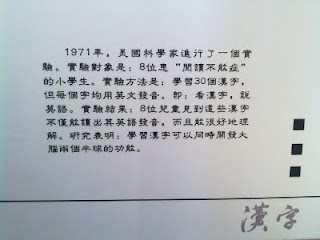 1971年，美國科學家進行了一個實
驗。實驗對象是：8位患“閱讀不能症”
的小學生。實驗方法是：學習30個漢字，
但每個字均用英文發音。即：看漢字，說
英語。實驗結果：8位兒童見到這些漢字
不僅能讀出其英語發音，而且能很好地理
解。研究表明：學習漢字可以同時開發大
腦兩個半球的功能。
漢字